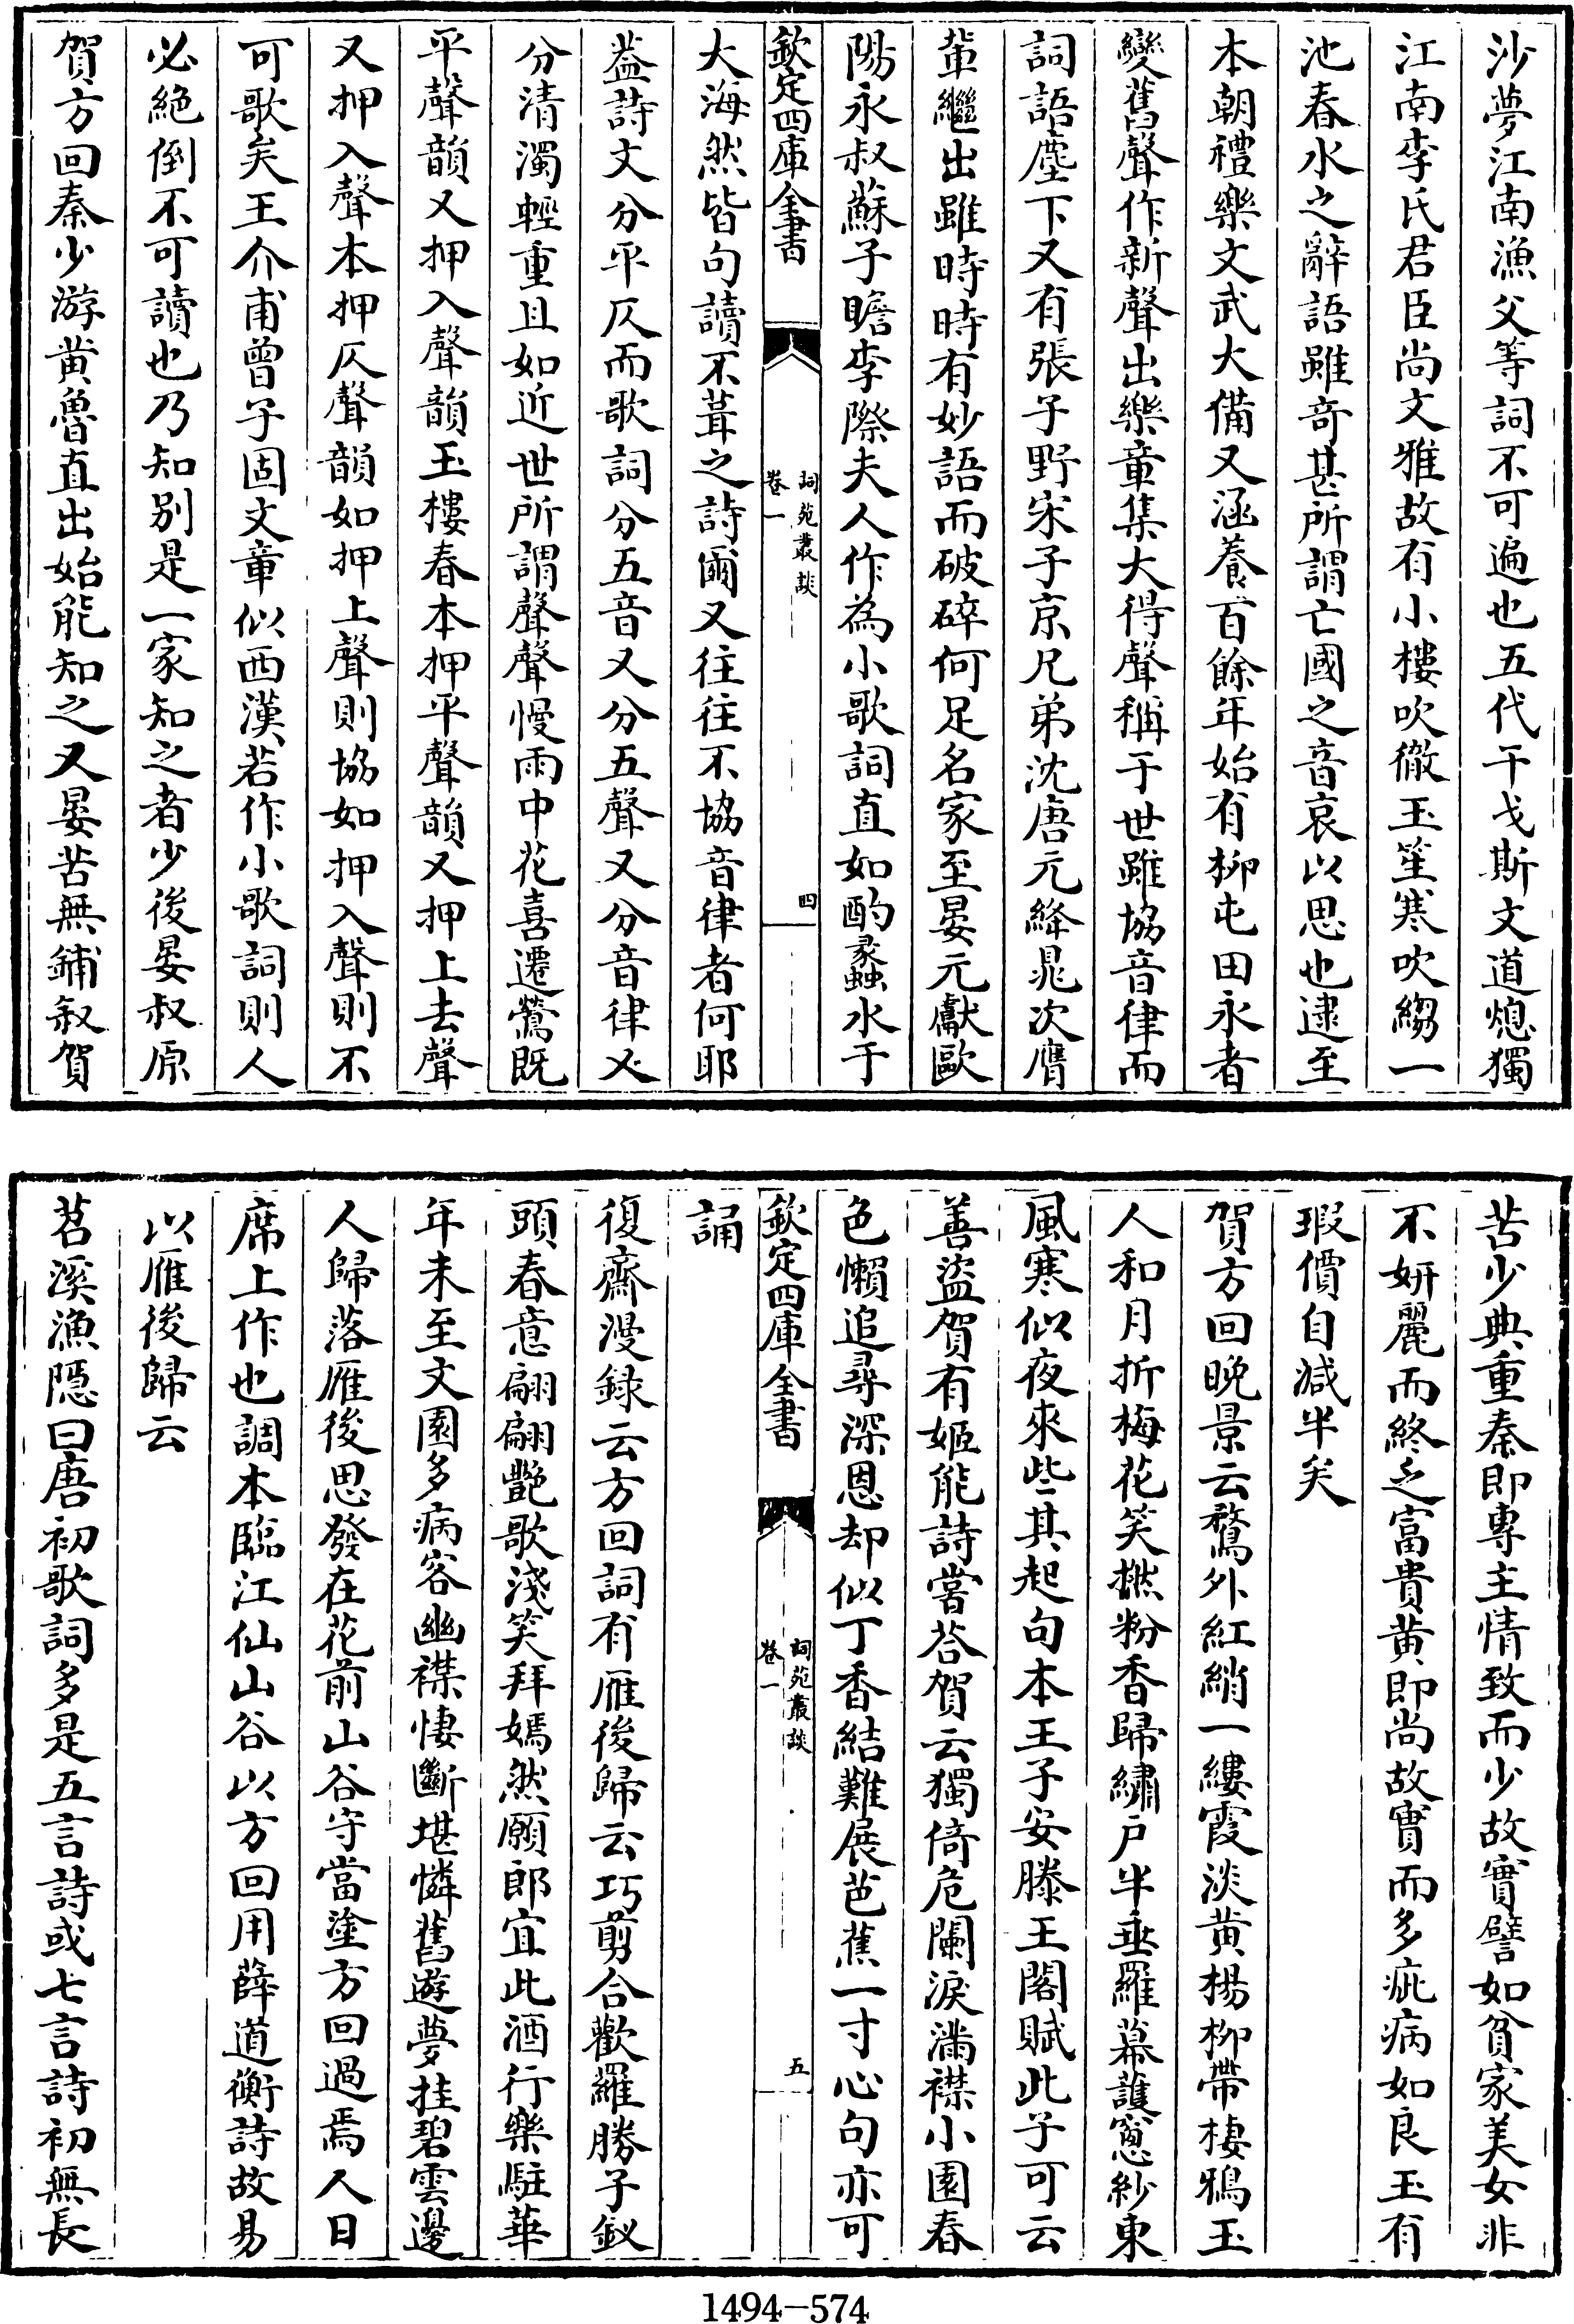 沙夢江南漁父等詞不可遍也五代干戈斯文道熄獨
江南李氏君臣尚文雅故有小樓吹徹玉笙寒吹縐一
池春水之辭語雖竒甚所謂亡國之音哀以思也逮至
本朝禮樂文武大備又涵養百餘年始有柳屯田永者
變舊聲作新聲出樂章集大得聲稱于世雖協音律而
詞語塵下又有張子野宋子京兄弟沈唐元絳晁次膺
輩繼出雖時時有妙語而破碎何足名家至晏元獻歐
陽永叔蘇子瞻李際夫人作為小歌詞直如酌蠡水于
欽定四庫全書
詞苑叢談
卷一
四
大海然皆句讀不葺之詩爾又往往不協音律者何耶
葢詩文分平仄而歌詞分五音又分五聲又分音律又
分清濁輕重且如近世所謂聲聲慢雨中花喜遷鶯既
平聲韻又押入聲韻玉樓春本押平聲韻又押上去聲
又押入聲本押仄聲韻如押上聲則協如押入聲則不
可歌矣王介甫曾子固文章似西漢若作小歌詞則人
必絶倒不可讀也乃知别是一家知之者少後晏叔原
賀方回秦少游黄魯直出始能知之又晏苦無鋪叙賀
苦少典重秦即專主情致而少故實譬如貧家美女非
不妍麗而終乏富貴黄即尚故實而多疵病如良玉有
瑕價自減半矣
賀方回晩景云鶩外紅綃一縷霞淡黄楊柳帶棲鴉玉
人和月折梅花笑撚粉香歸繡户半垂羅幕護窻紗東
風寒似夜來些其起句本王子安滕王閣賦此子可云
善盜賀有姬能詩嘗荅賀云獨倚危闌淚滿襟小園春
色懶追尋深恩却似丁香結難展芭蕉一寸心句亦可
欽定四庫全書
詞苑叢談
卷一
五
誦
復齋漫録云方回詞有雁後歸云巧剪合歡羅勝子釵
頭春意翩翩艷歌淺笑拜嫣然願郎宜此酒行樂駐華
年未至文園多病客幽襟悽斷堪憐舊遊夢挂碧雲邊
人歸落雁後思發在花前山谷守當塗方回過焉人日
席上作也調本臨江仙山谷以方回用薛道衡詩故易
以雁後歸云
苕溪漁隱曰唐初歌詞多是五言詩或七言詩初無長
1494-574